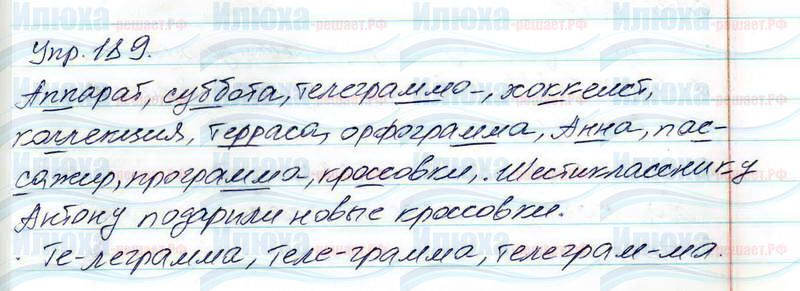 Упр. 189.
Аппарат, суббота, телеграмма, хоккеист,
коллекция, терраса, орфограмма, Анна, пас-
сажир, программа, кроссовки,. Шестикласснику
Антону подарили новые кроссовки.
Те-леграмма, теле-грамма, телеграм-ма.